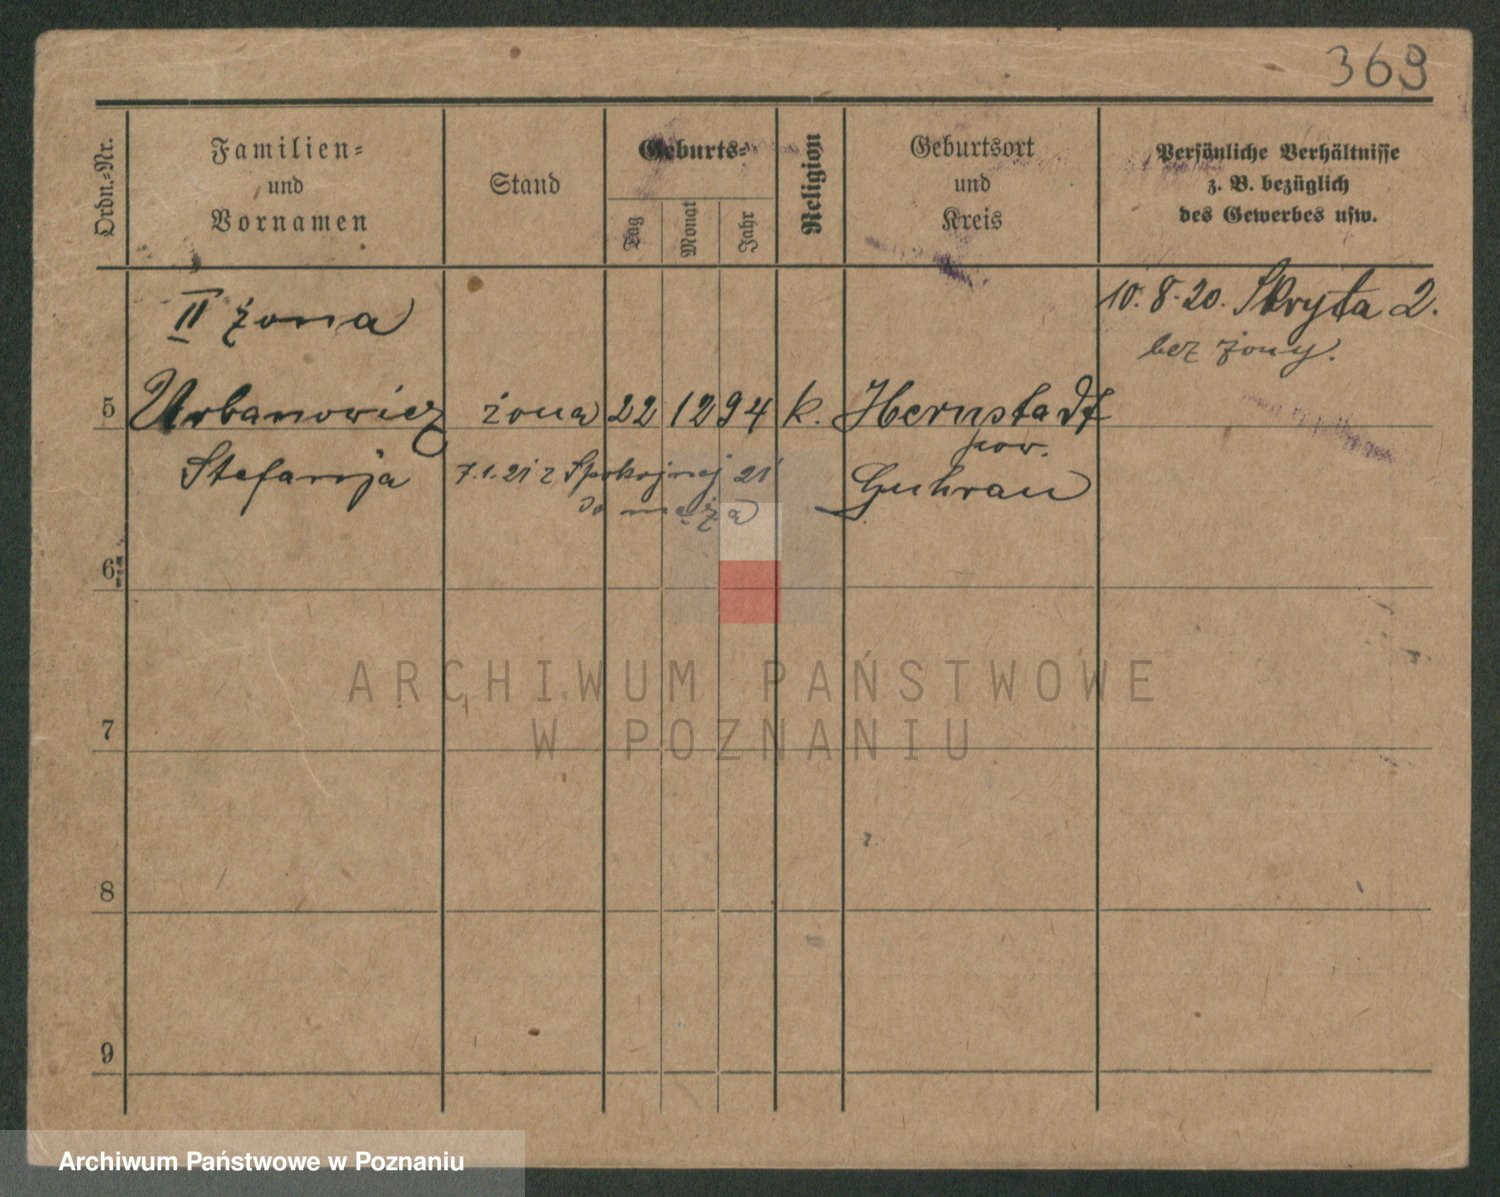 369
Ordn.-Nr.
Familien-
und
Vornamen
Stand
Geburts-
Tag
Monat
Jahr
Religion
Geburtsort
und
Kreis
Persönliche Verhältnisse
z. B. bezüglich
des Gewerbes usw.
II żona
10. 8. 20. Skryta 2.
bez żony.
5 Urbanowicz żona 22 12 94 k. Hernstadt
pow.
Stefanja 7.1.21 z Spokojnej 21 Guhrau
do męża
6
ARCHIWUM PAŃSTWOWE
7
W POZNANIU
8
9
Archiwum Państwowe w Poznaniu